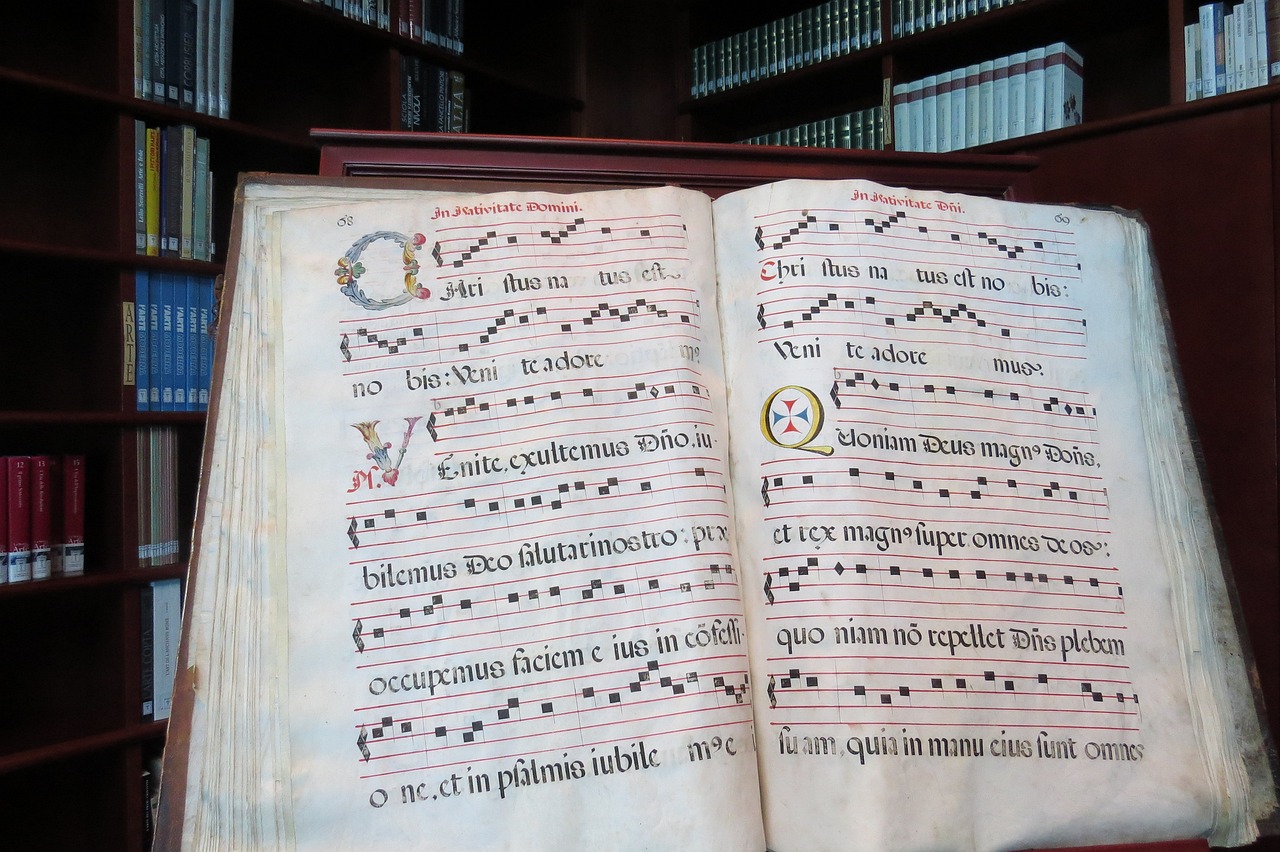 68
In Nativitate Domini.
CHri stus na tus est
no bis: Veni te adore m9
Ps. VEnite, exultemus Dño, iu-
bilemus Deo salutari nostro: præ
occupemus faciem e ius in cõfessi-
o ne, et in psalmis iubile m9 e
69
In Nativitate Dñi.
Chri stus na tus est no bis:
Veni te adore mus.
Quoniam Deus magn9 Doñs,
et rex magn9 super omnes deos:
quo niam nõ repellet Dñs plebem
su am, quia in manu eius sunt omnes
ARTE
L'ARTE
L'ARTE
L'ARTE
L'ARTE
12
13